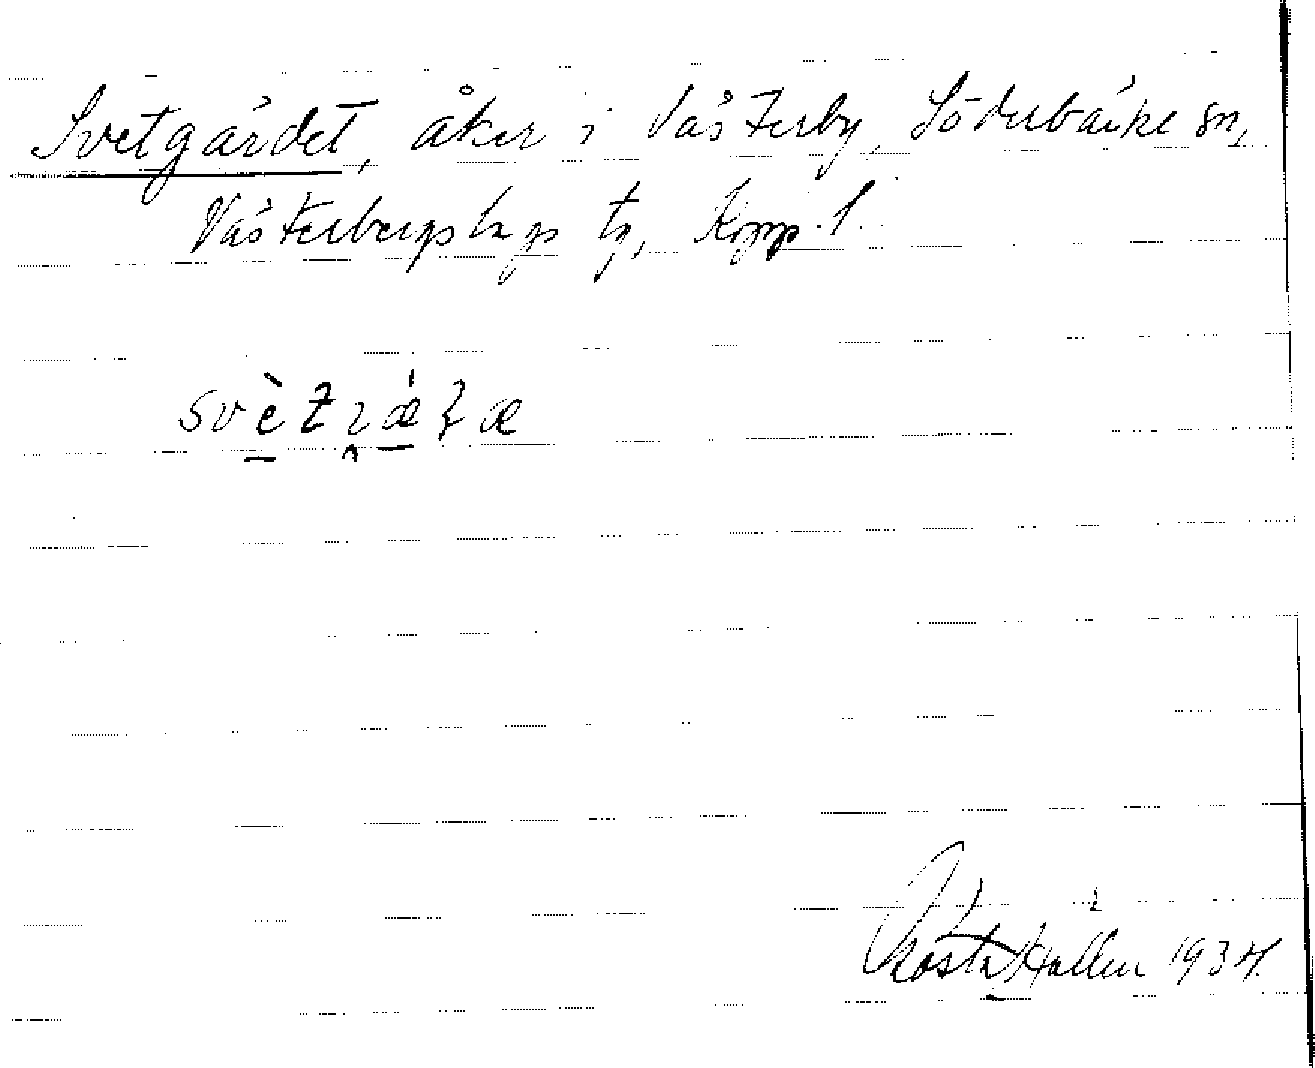 Svetgärdet, åker i Västerby, Söderbärke sn,
Västerbergslags tg, Kopp. l.
Gösta Hallén 1934.